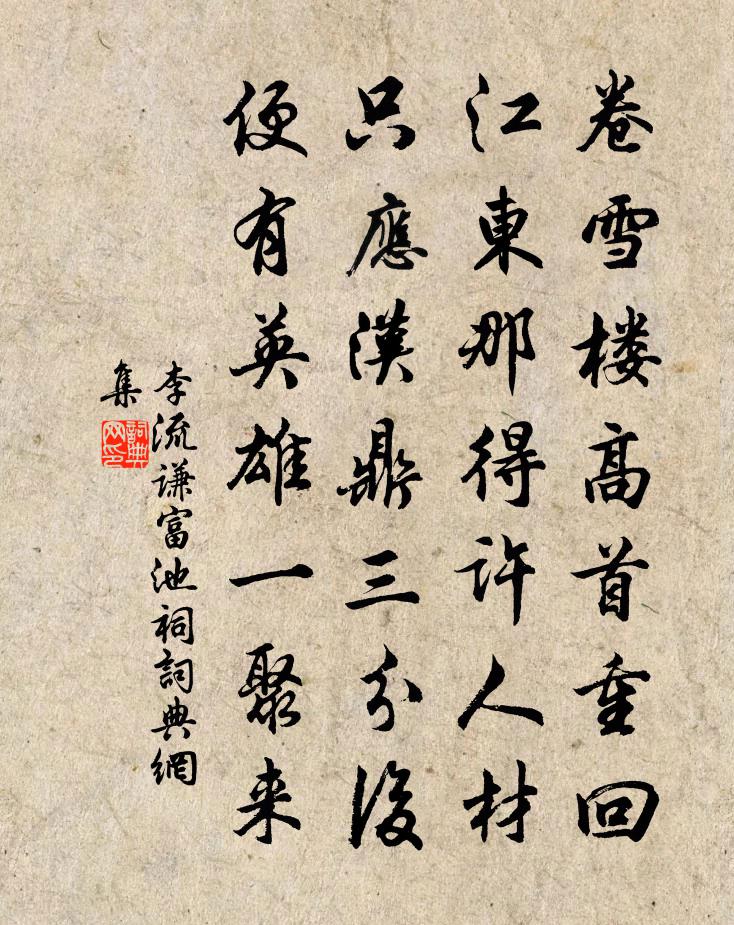 卷雪楼髙首重回
江東那得許人材
只應漢鼎三分後
便有英雄一聚来
李流谦富池祠詞典網
集
詞典
网印